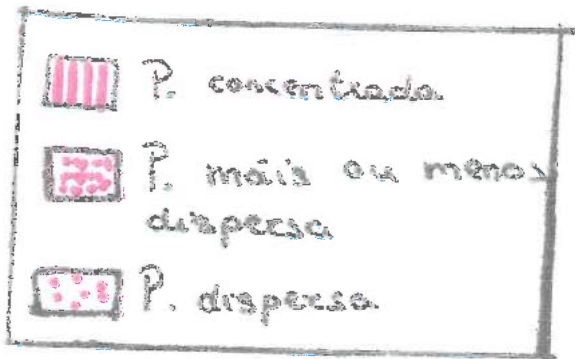 P. concentrada
P. máis ou menos
dispersa
P. dispersa